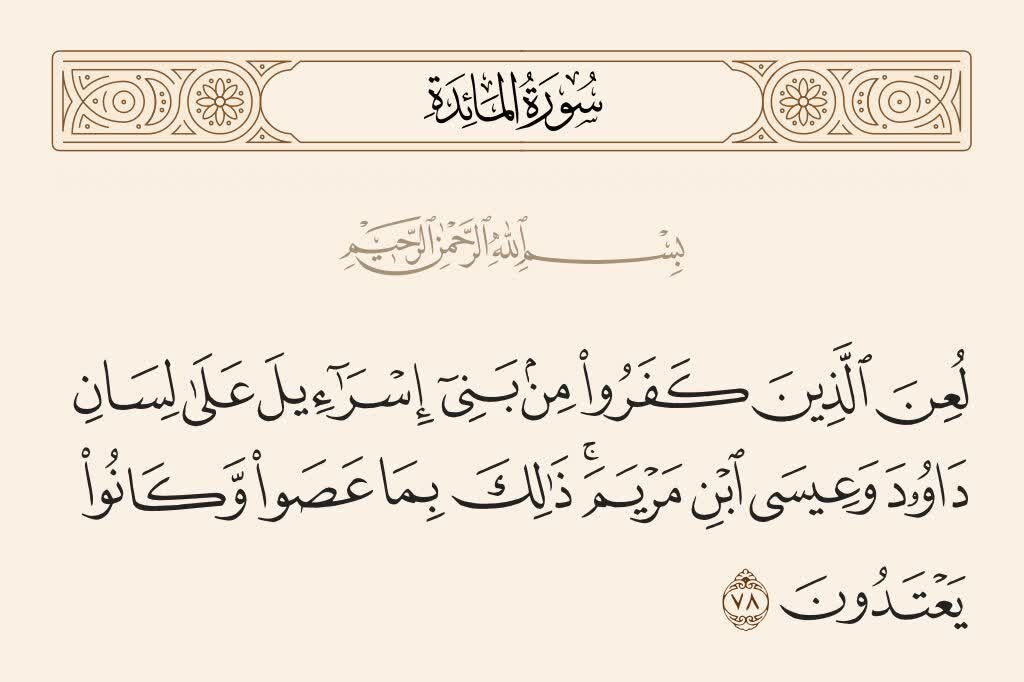 سُورَةُ المَائِدَةِ
بِسْمِ ٱللَّهِ ٱلرَّحْمَٰنِ ٱلرَّحِيمِ
لُعِنَ ٱلَّذِينَ كَفَرُوا۟ مِنۢ بَنِىٓ إِسْرَٰٓءِيلَ عَلَىٰ لِسَانِ
دَاوُۥدَ وَعِيسَى ٱبْنِ مَرْيَمَ ۚ ذَٰلِكَ بِمَا عَصَوا۟ وَّكَانُوا۟
يَعْتَدُونَ ٧٨